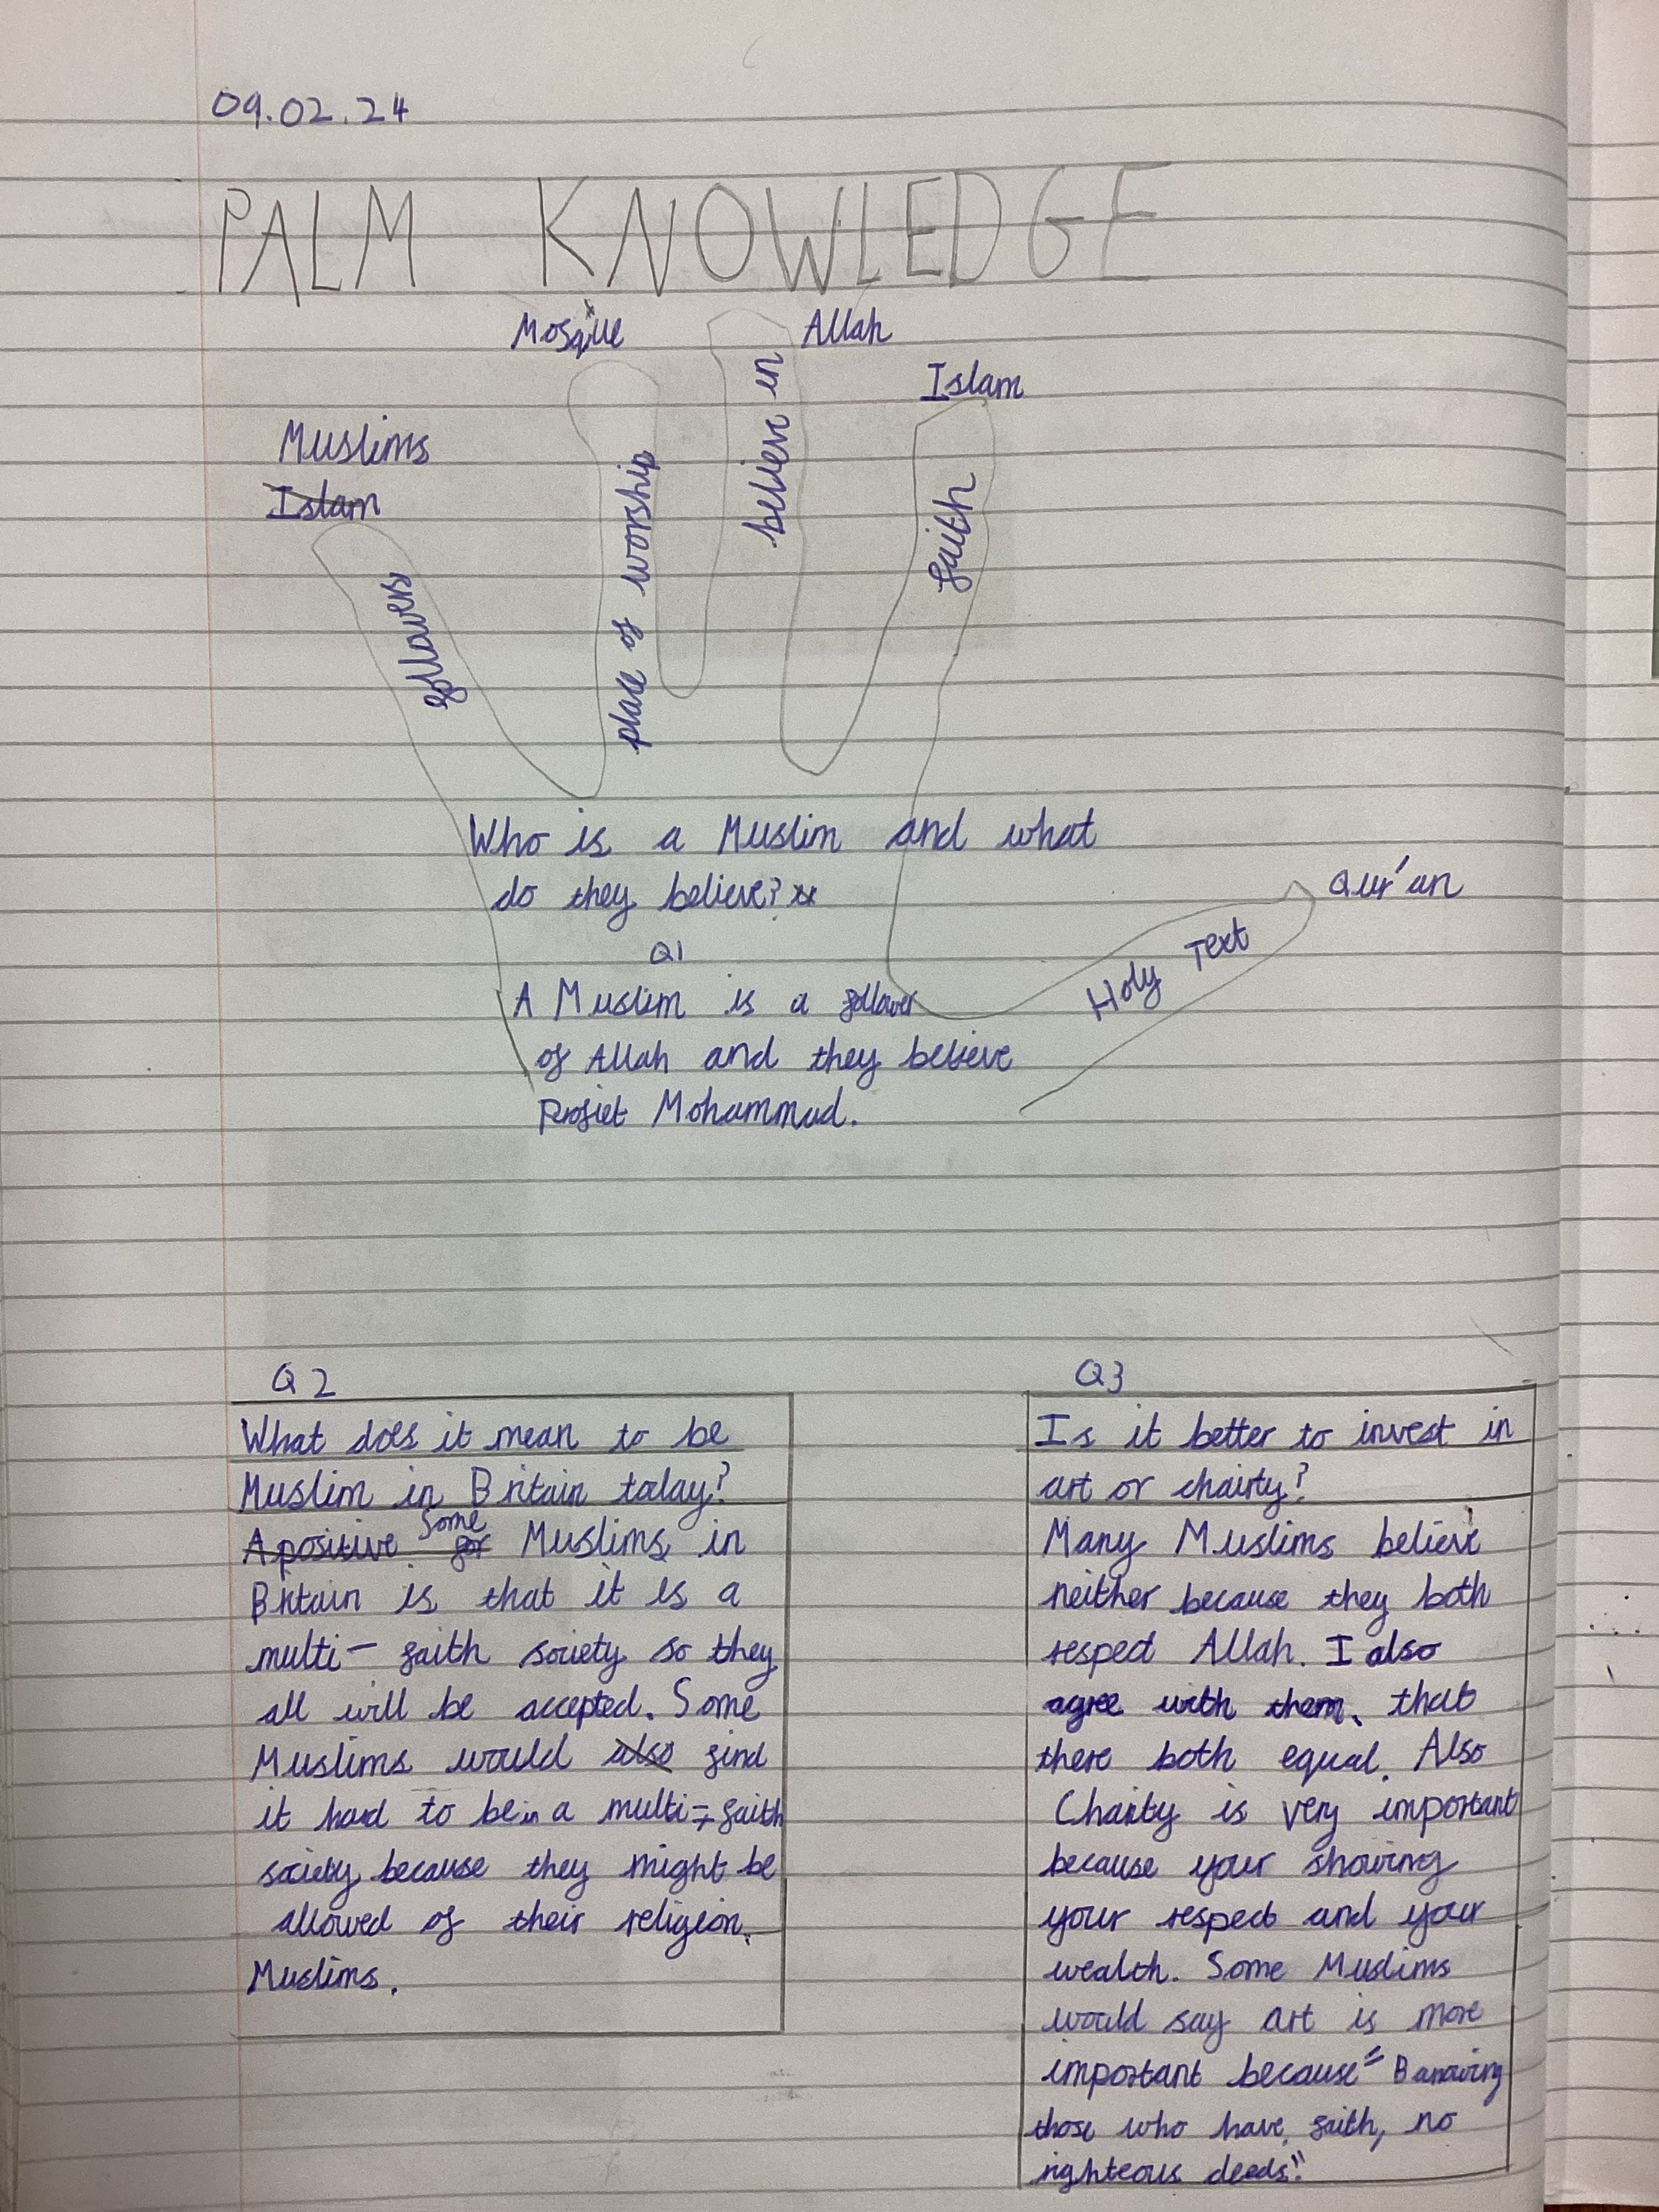 09.02.24
PALM KNOWLEDGE
Mosque
Allah
Islam
Muslims
Islam
followers
place of worship
believe in
faith
Who is a Muslim and what
do they believe?
Qur'an
Holy Text
Q1
A Muslim is a follower
of Allah and they believe
Profiet Mohammad.
Q2
What does it mean to be
Muslim in Britain today?
A positive for Some Muslims in
Britain is that it is a
multi-faith society so they
all will be accepted. Some
Muslims would also find
it hard to be in a multi-faith
society because they might be
allowed of their religion.
Muslims.
Q3
Is it better to invest in
art or chairty?
Many Muslims believe
neither because they both
respect Allah. I also
agree with them, that
there both equal. Also
Charity is very important
because your showing
your respect and your
wealth. Some Muslims
would say art is more
important because "
those who have faith, no
righteous deeds."